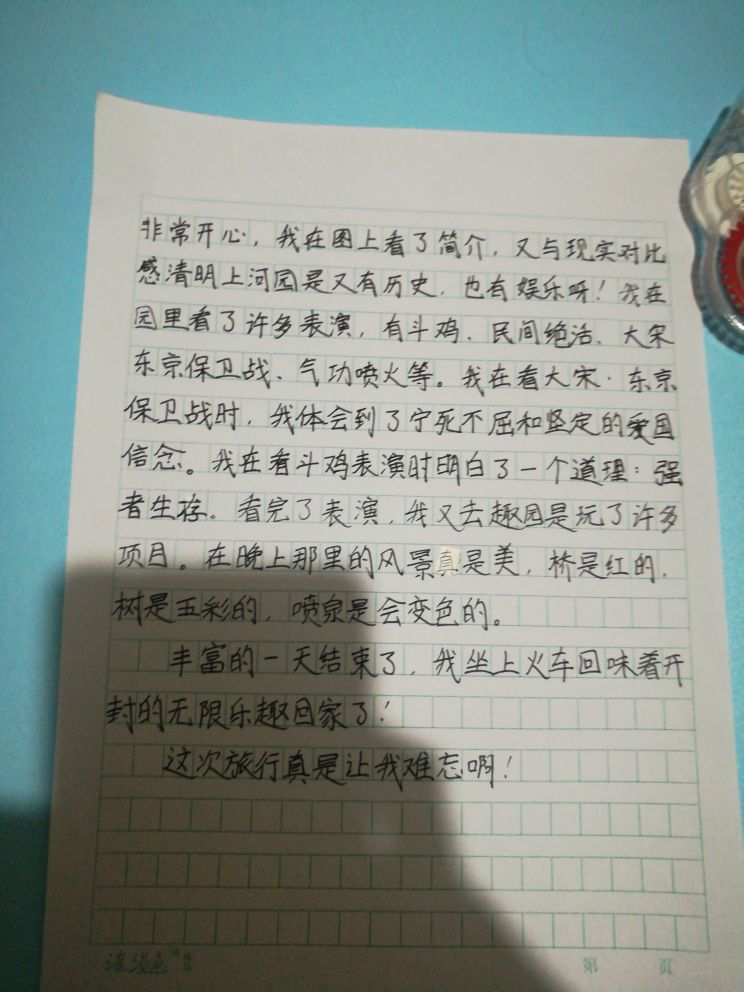 非常开心，我在图上看了简介，又与现实对比
感清明上河园是又有历史，也有娱乐呀！我在
园里看了许多表演，有斗鸡、民间绝活、大宋
东京保卫战、气功喷火等。我在看大宋·东京
保卫战时，我体会到了宁死不屈和坚定的爱国
信念。我在看斗鸡表演时明白了一个道理：强
者生存。看完了表演，我又去趣园是玩了许多
项目。在晚上那里的风景真是美，桥是红的，
树是五彩的，喷泉是会变色的。
丰富的一天结束了，我坐上火车回味着开
封的无限乐趣回家了！
这次旅行真是让我难忘啊！
第 页